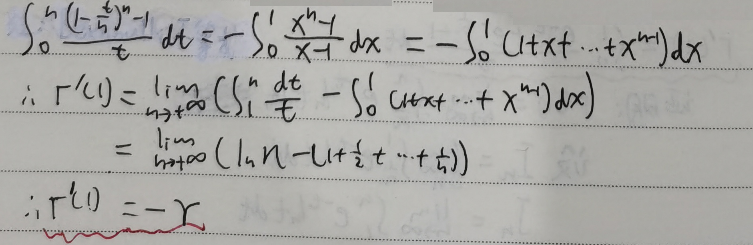 ∫₀ⁿ ((1-t/n)ⁿ-1)/t dt = -∫₀¹ (xⁿ-1)/(x-1) dx = -∫₀¹ (1+x+…+xⁿ⁻¹)dx
∴ Γ'(1) = lim_{n→+∞} (∫₁ⁿ dt/t - ∫₀¹ (1+x+…+xⁿ⁻¹)dx)
= lim_{n→+∞} (ln n - (1+1/2+…+1/n))
∴ Γ'(1) = -γ